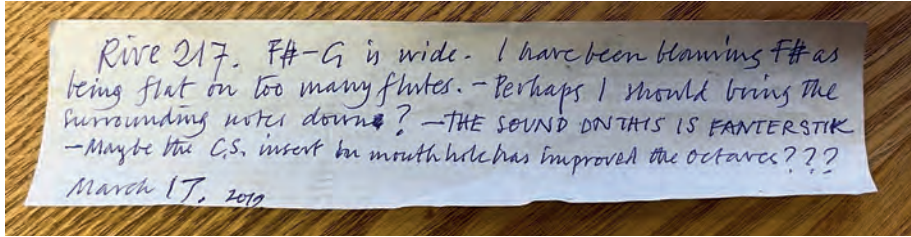 Rive 217. F#-G is wide. I have been blaming F# as
being flat on too many flutes. - Perhaps I should bring the
surrounding notes down? - THE SOUND ON THIS IS FANTERSTIK
- Maybe the C.S. insert in mouthhole has improved the octaves???
March 17, 2019